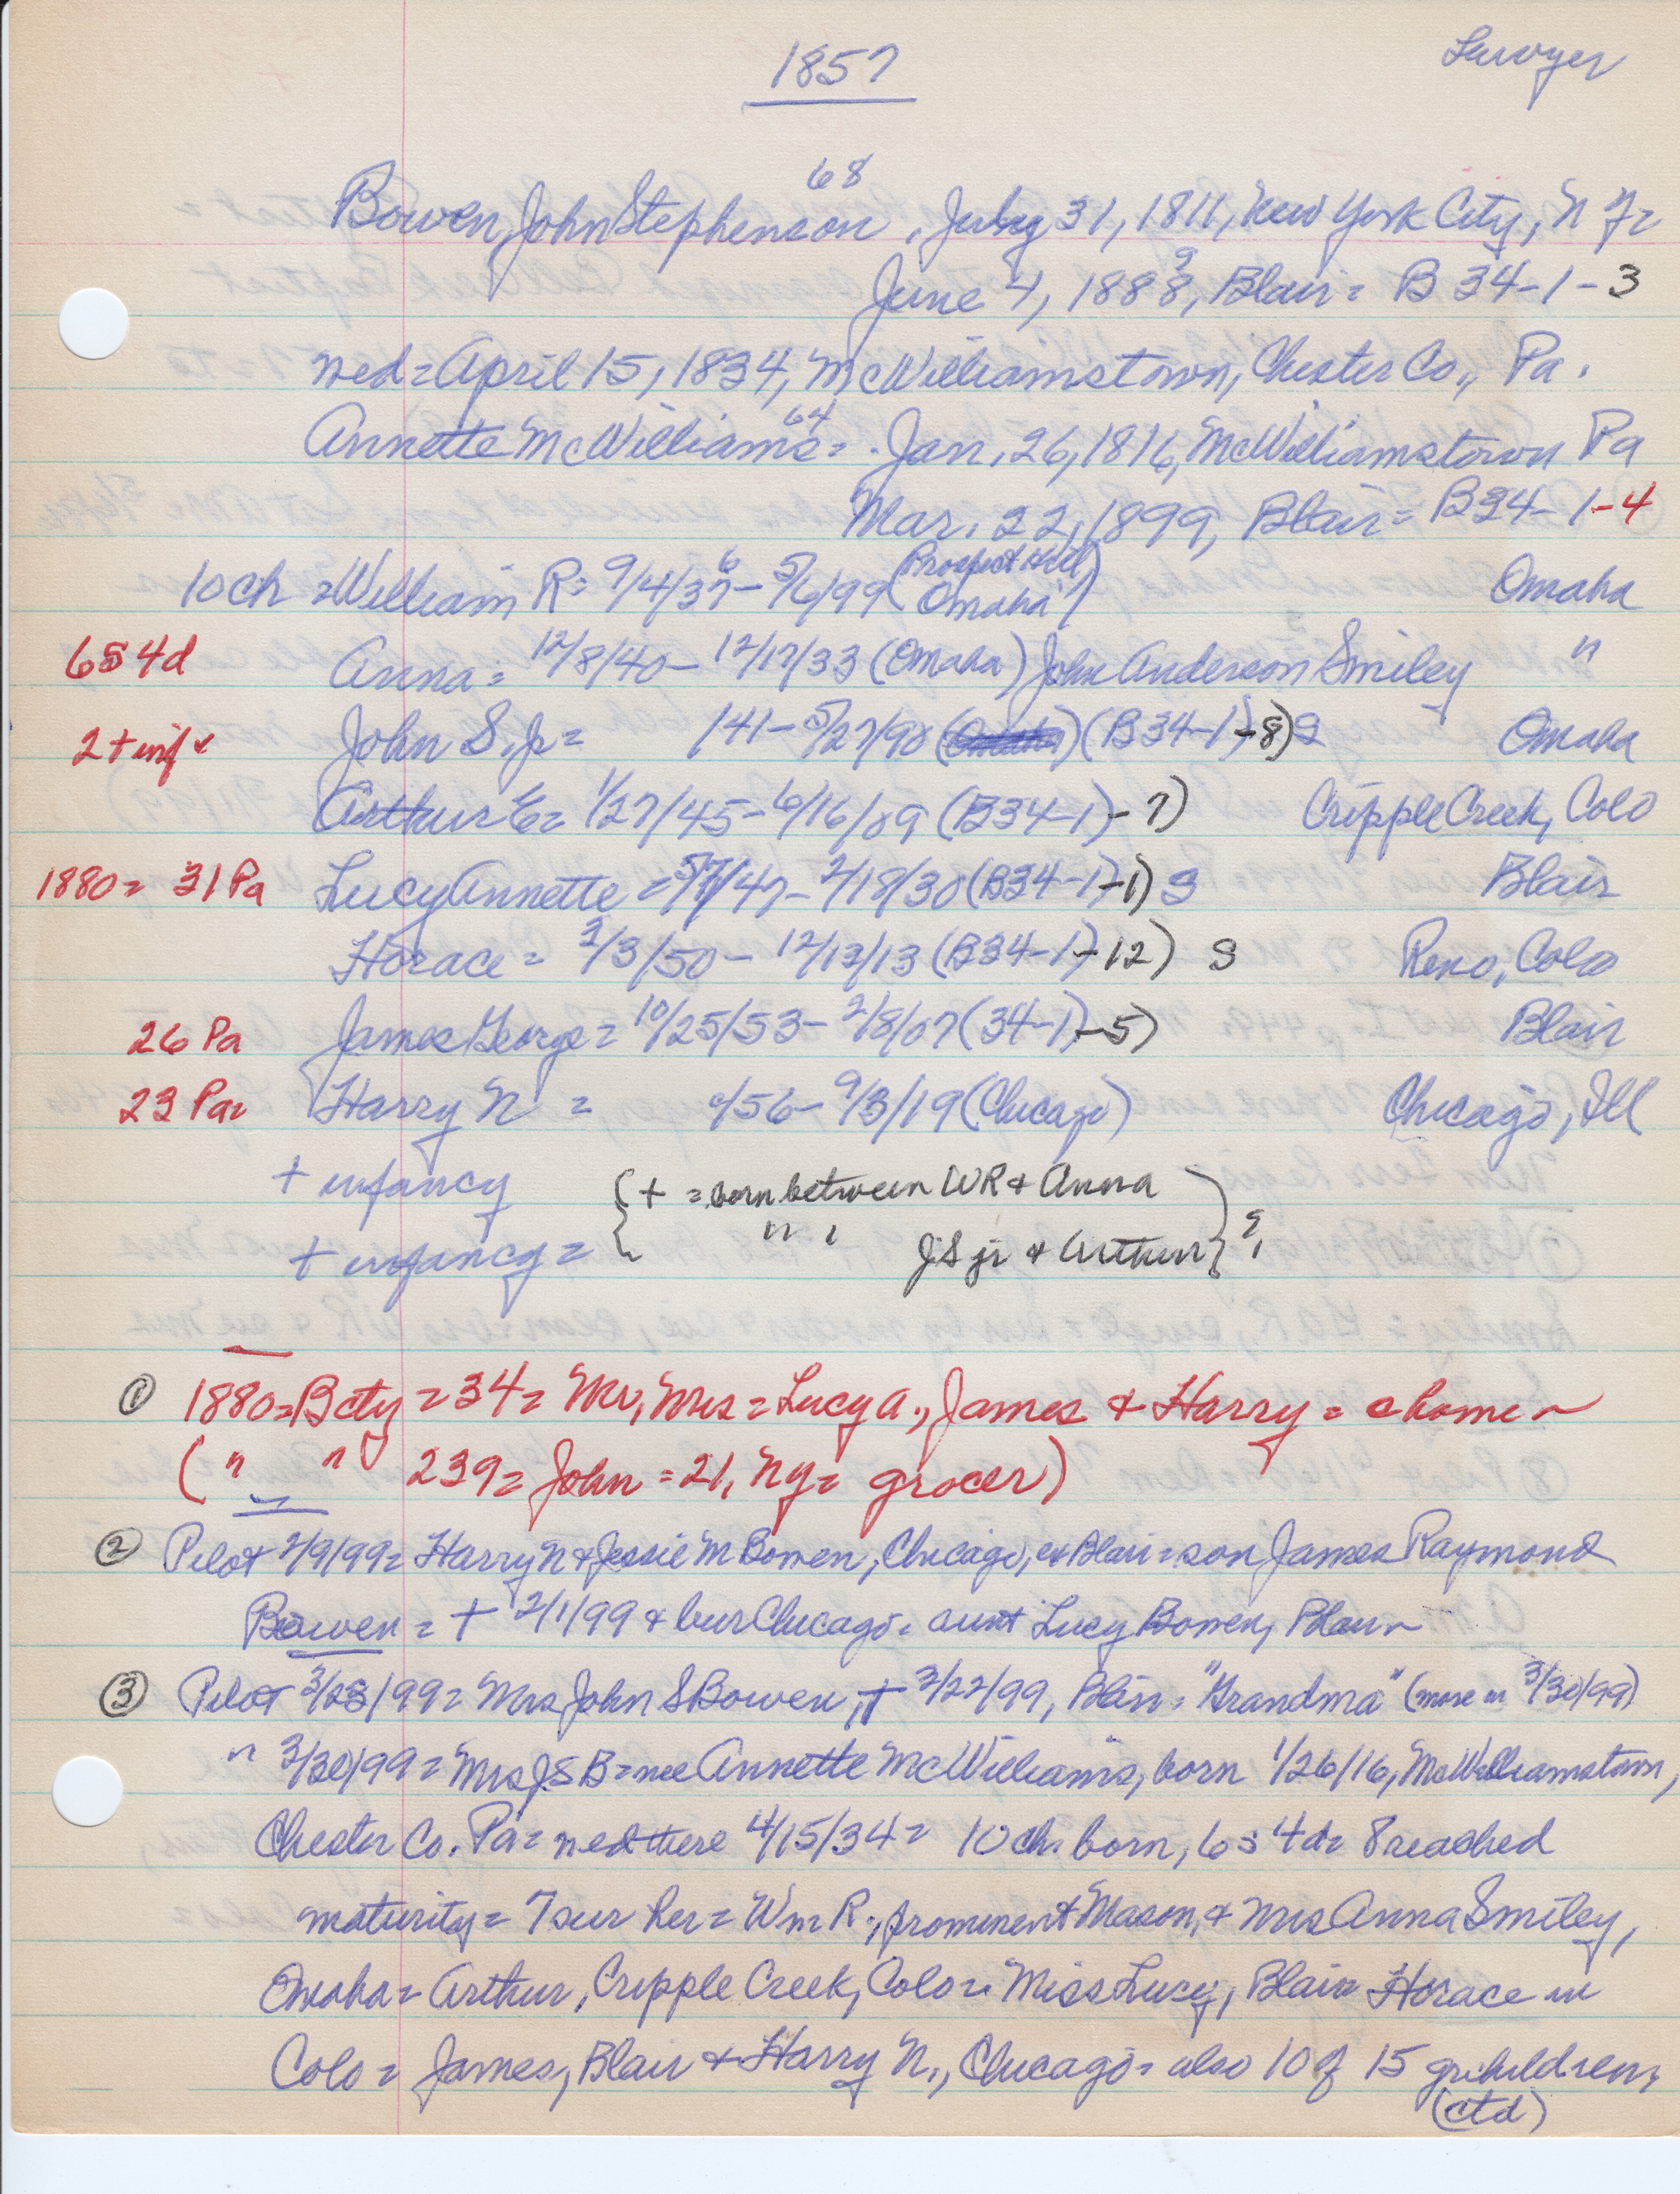 1857
Lawyer
68
Bowen, John Stephenson, July 31, 1811, New York City, N Y =
9
June 4, 1888, Blair = B 34-1-3
med = April 15, 1834, McWilliamstown, Chester Co., Pa.
64
Annette McWilliams = Jan. 26, 1816, McWilliamstown Pa
Mar. 22, 1899, Blair = B34-1-4
10 ch = William R = 9/4/37 - 5/6/99 (Prospect Hill Omaha) Omaha
6s 4d Anna = 12/8/40 - 12/17/33 (Omaha) John Anderson Smiley "
2 + inf John S. Jr = /41 - 5/27/90 (Omaha) (B34-1)-8) S Omaha
Arthur E = 1/27/45 - 6/16/09 (B34-1)-7) Cripple Creek, Colo
1880 = 31 Pa Lucy Annette = 5/7/47 - 2/18/30 (B34-1)-1) S Blair
Horace = 3/3/50 - 12/12/13 (B34-1)-12) S Reno, Colo
26 Pa James George = 10/25/53 - 2/8/07 (34-1)-5) Blair
23 Pa = Harry N = /56 - 9/3/19 (Chicago) Chicago, Ill
+ infancy { + = born between WR & Anna }
+ infancy = { " " JS jr & Arthur } ?
① 1880 = Bcty = 34 = Mr, Mrs = Lucy A., James & Harry = @ home ~
( " " 239 = John = 21, NY = grocer)
② Pilot 2/9/99 = Harry N & Jessie M Bowen, Chicago, ex Blair = son James Raymond
Bowen = + 2/1/99 & bur Chicago = aunt Lucy Bowen, Blair ~
③ Pilot 3/23/99 = Mrs John S Bowen, + 3/22/99, Blair = "Grandma" (more in 3/30/99)
" 3/30/99 = Mrs J S B = nee Annette McWilliams, born 1/26/16, McWilliamstown,
Chester Co. Pa = med there 4/15/34 = 10 ch. born, 6s 4d = 8 reached
maturity = 7 sur her = Wm R., prominent Mason, & Mrs Anna Smiley,
Omaha = Arthur, Cripple Creek, Colo = Miss Lucy, Blair = Horace in
Colo = James, Blair & Harry N., Chicago = also 10 of 15 grchildren,
(ctd)